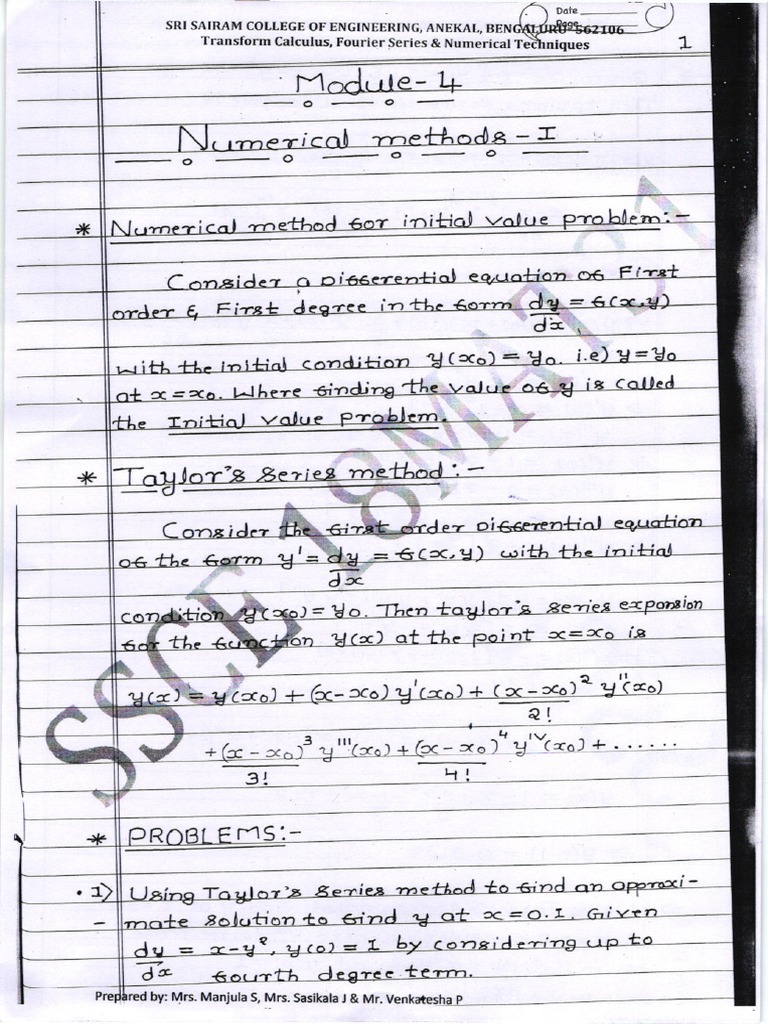 Date
Page
SRI SAIRAM COLLEGE OF ENGINEERING, ANEKAL, BENGALURU-562106
Transform Calculus, Fourier Series & Numerical Techniques
1
Module-4
Numerical methods - I
* Numerical method for initial value problem:-
Consider a Differential equation of First
order & First degree in the form dy/dx = f(x,y)
with the initial condition y(x₀) = y₀. i.e) y=y₀
at x=x₀. Where finding the value of y is called
the Initial value problem.
* Taylor's series method:-
Consider the first order Differential equation
of the form y' = dy/dx = f(x,y) with the initial
condition y(x₀) = y₀. Then taylor's series expansion
for the function y(x) at the point x=x₀ is
y(x) = y(x₀) + (x-x₀) y'(x₀) + (x-x₀)²/2! y''(x₀)
+ (x-x₀)³/3! y'''(x₀) + (x-x₀)⁴/4! y'ᵛ(x₀) + ......
* PROBLEMS:-
1) Using Taylor's series method to find an approxi-
- mate solution to find y at x=0.1. Given
dy/dx = x-y², y(0) = 1 by considering up to
fourth degree term.
Prepared by: Mrs. Manjula S, Mrs. Sasikala J & Mr. Venkatesha P
SSCE 18MAT31